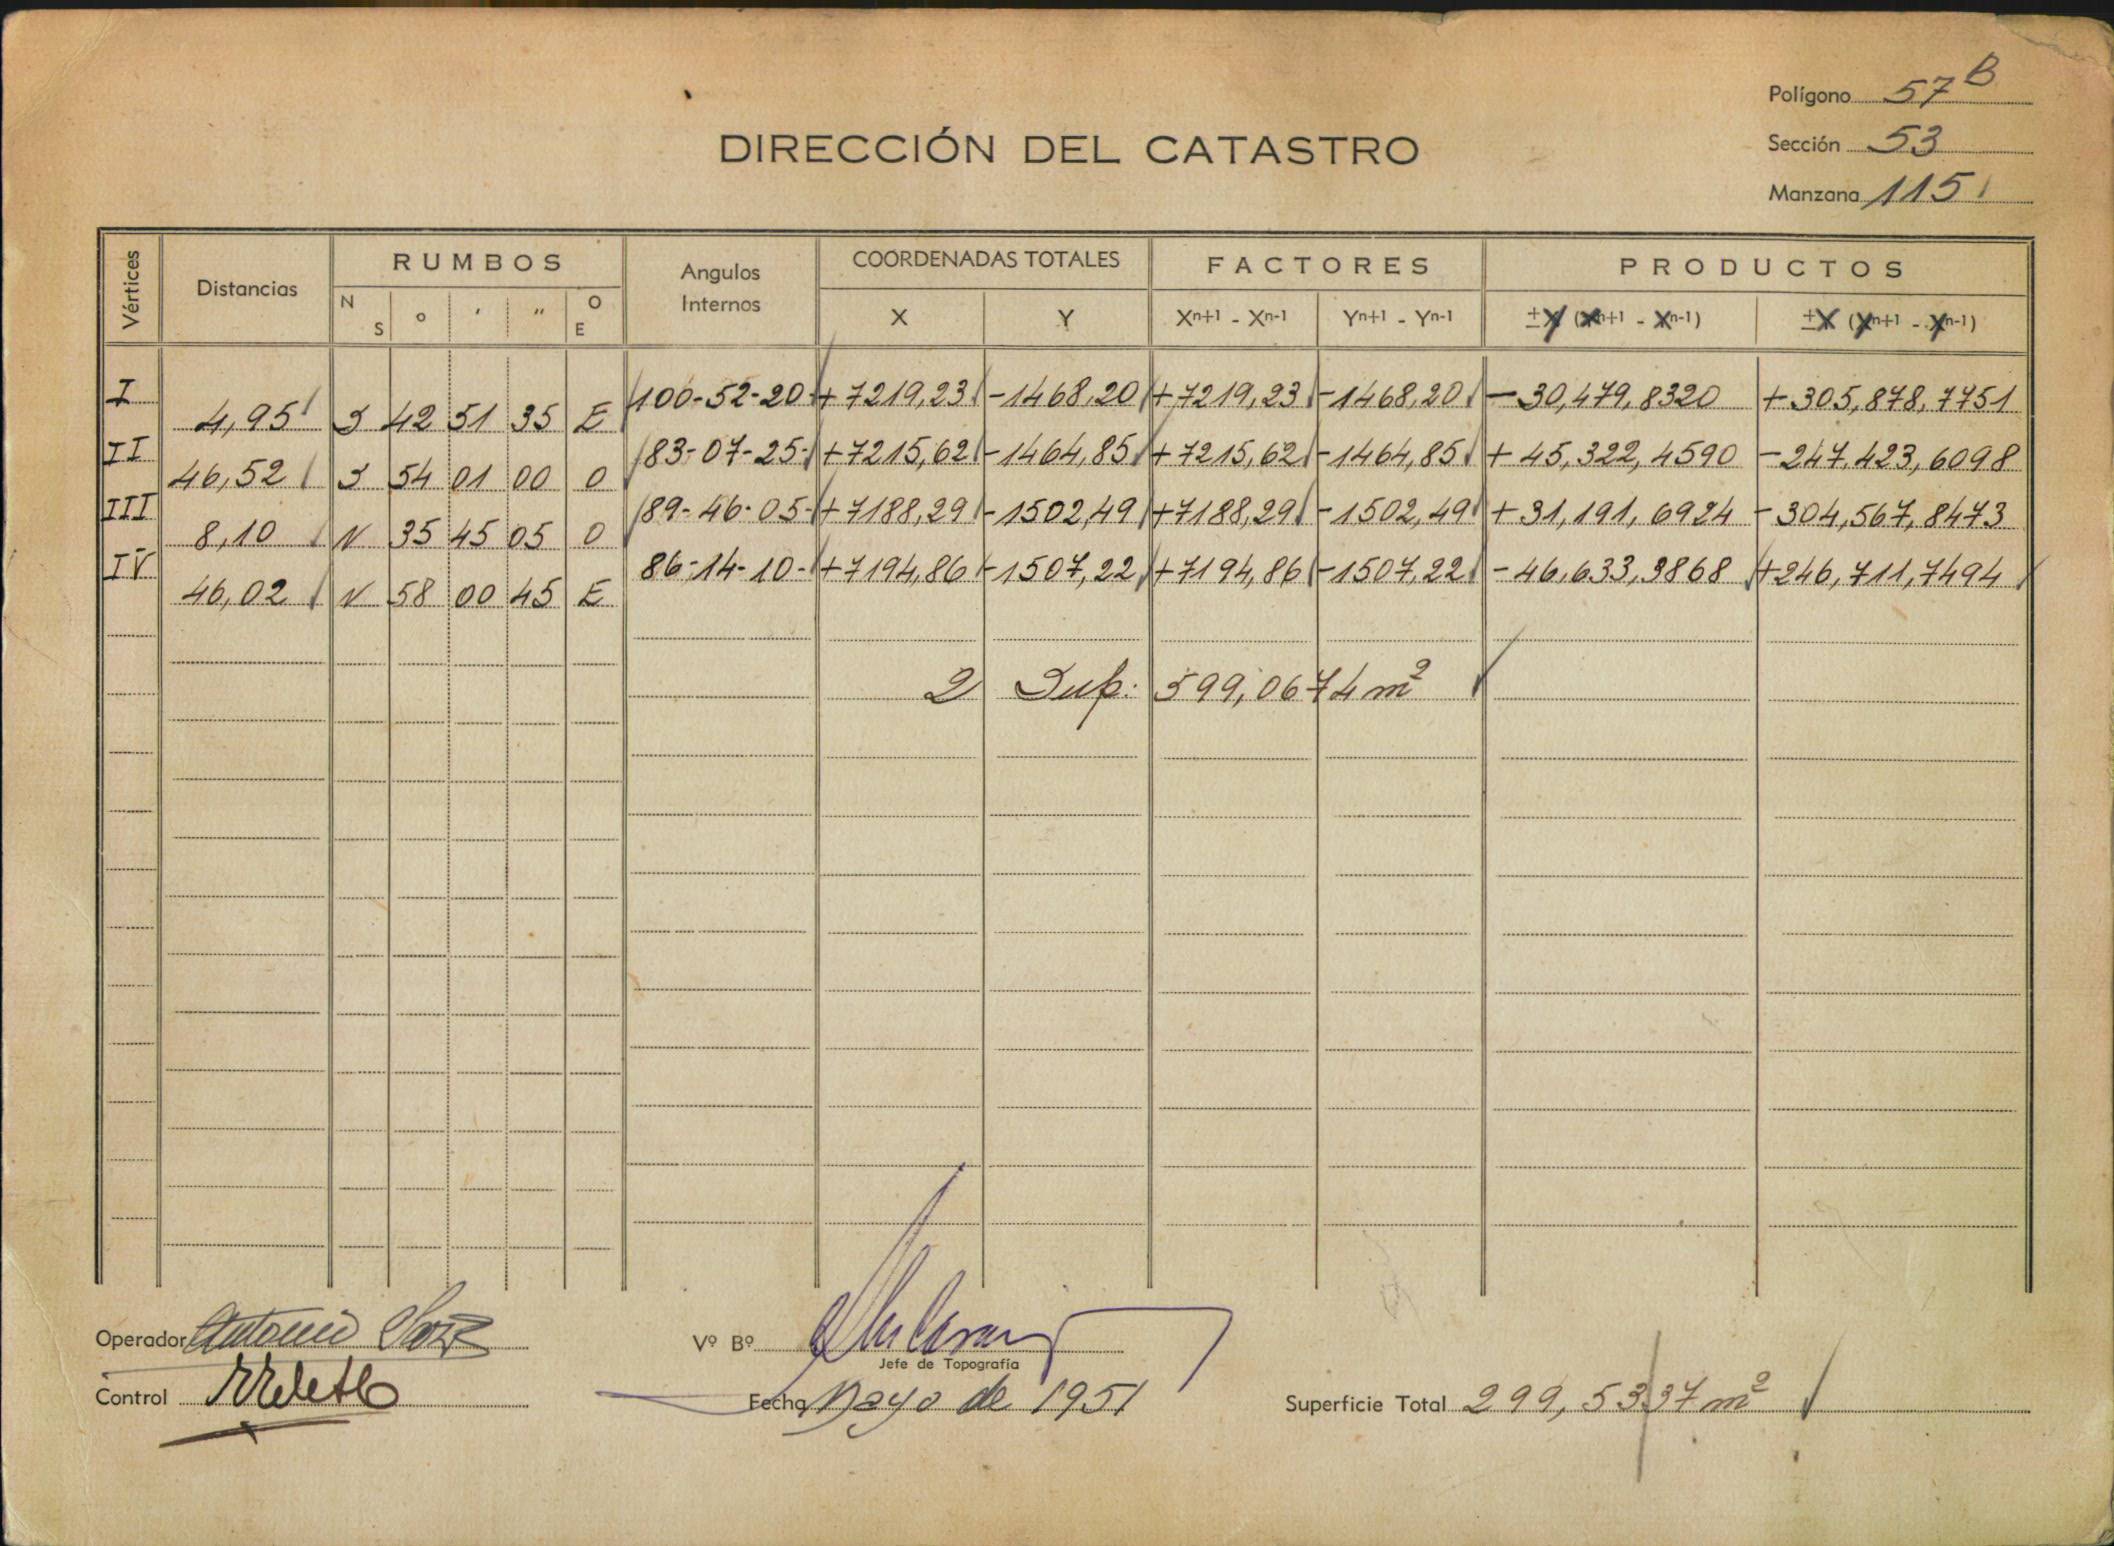 Polígono 57 B
Sección 53
Manzana 115
DIRECCIÓN DEL CATASTRO
Vértices Distancias RUMBOS Angulos Internos COORDENADAS TOTALES FACTORES PRODUCTOS
N S ° ' " O E X Y Xn+1 - Xn-1 Yn+1 - Yn-1 ±X (Xn+1 - Xn-1) ±X (Xn+1 - Xn-1)
I 100-52-20 +7219,23 -1468,20 +7219,23 -1468,20 -30,479,8320 +305,878,7751
4,95 S 42 51 35 E
II 83-07-25- +7215,62 -1464,85 +7215,62 -1464,85 +45,322,4590 -247,423,6098
46,52 S 54 01 00 O
III 89-46-05- +7188,29 -1502,49 +7188,29 -1502,49 +31,191,6924 -304,567,8473
8,10 N 35 45 05 O
IV 86-14-10- +7194,86 -1507,22 +7194,86 -1507,22 -46,633,3868 +246,711,7494
46,02 N 58 00 45 E
2 Sup. 599,0674 m²
Operador Antonio
Vº Bº
Jefe de Topografía
Control
Fecha Mayo de 1951
Superficie Total 299,5337 m²